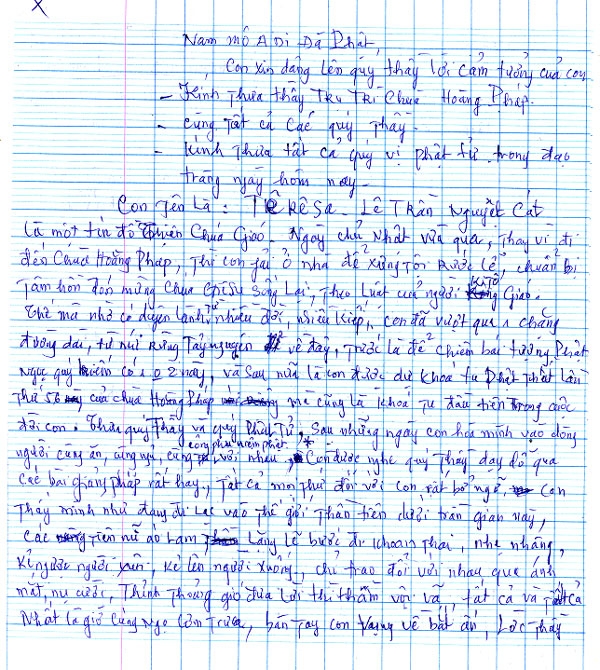 Nam mô A Di Đà Phật,
Con xin dâng lên quý thầy lời cảm tưởng của con
- Kính thưa thầy Trụ Trì Chùa Hoằng Pháp.
- cùng tất cả các quý thầy.
- kính thưa tất cả quý vị phật tử trong đạo
tràng ngày hôm nay.
Con Tên Là: TÊRÊSA. LÊ TRẦN Nguyệt Cát
là một tín đồ Thiên Chúa Giáo. Ngày chủ nhật vừa qua, Thay vì đi
đến Chùa Hoằng Pháp, Thì con phải ở nhà để xưng tội Rước lễ, chuẩn bị
Tâm hồn đón mừng Chúa GiêSu sống lại, Theo luật của người KiTô Giáo.
Thế mà nhờ có duyên lành, từ nhiều đời, nhiều kiếp, con đã vượt qua 1 chặng
đường dài, từ núi Rừng Tây nguyên về đây, Trước là để chiêm bái tượng Phật
Ngọc quý hiếm có 1 0 2 này, và sau nữa là con được dự khoá tu Phật thất lần
Thứ 56 của chùa Hoằng Pháp mà cũng là khoá Tu đầu tiên Trong cuộc
đời con. Thưa quý Thầy và quý Phật Tử, sau những ngày con hoà mình vào dòng
người cùng ăn, cùng ngủ, cùng công phu niệm phật với nhau, Con được nghe quý Thầy dạy dỗ qua
các bài giảng pháp rất hay, Tất cả mọi thứ đối với con rất bỡ ngỡ con
Thấy mình như đang đi lạc vào thế giới Thần tiên dưới trần gian này,
các Tiên nữ áo lam Lặng lẽ bước đi khoan Thai, nhẹ nhàng,
kẻ ngược người xuôi, kẻ lên người xuống, chỉ trao đổi với nhau qua ánh
mắt, nụ cười, Thỉnh Thoảng gió đưa lời thì thầm vội vã, tất cả và Tất cả
Nhất là giờ Cúng ngọ cơm trưa, bàn tay con vụng về bắt ấn, Lóc Thấy